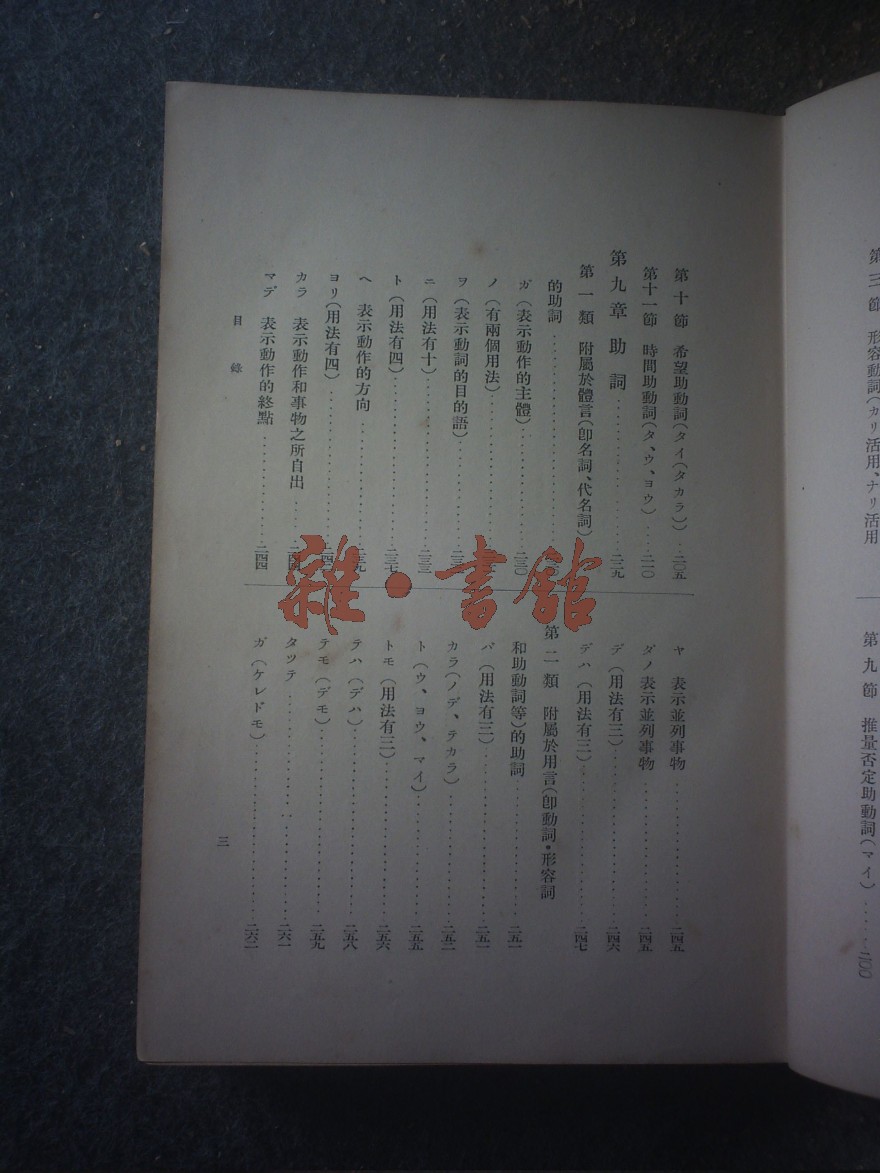 第三節　形容動詞(カリ活用、ナリ活用
第九節　推量否定助動詞(マイ)……二〇〇
第十節　希望助動詞(タイ(タカラ))……二〇五
第十一節　時間助動詞(タ、ウ、ヨウ)……二一〇
第九章　助詞……二二九
第一類　附屬於體言(卽名詞、代名詞)
的助詞……
ガ(表示動作的主體)……二三〇
ノ(有兩個用法)……
ヲ(表示動詞的目的語)……
ニ(用法有十)……二三三
ト(用法有四)……二三七
ヘ　表示動作的方向……二三九
ヨリ(用法有四)……
カラ　表示動作和事物之所自出……
マデ　表示動作的終點……二四四
ヤ　表示並列事物……二四五
ダノ表示並列事物……二四五
デ(用法有三)……二四六
デハ(用法有三)……二四七
第二類　附屬於用言(卽動詞・形容詞
和助動詞等)的助詞……二五一
バ(用法有三)……二五一
カラ(ノデ、テカラ)……二五二
ト(ウ、ヨウ、マイ)……二五五
トモ(用法有三)……二五六
テハ(デハ)……二五八
テモ(デモ)……二五九
タツテ……二六一
ガ(ケレドモ)……二六二
目錄
三
雜・書館